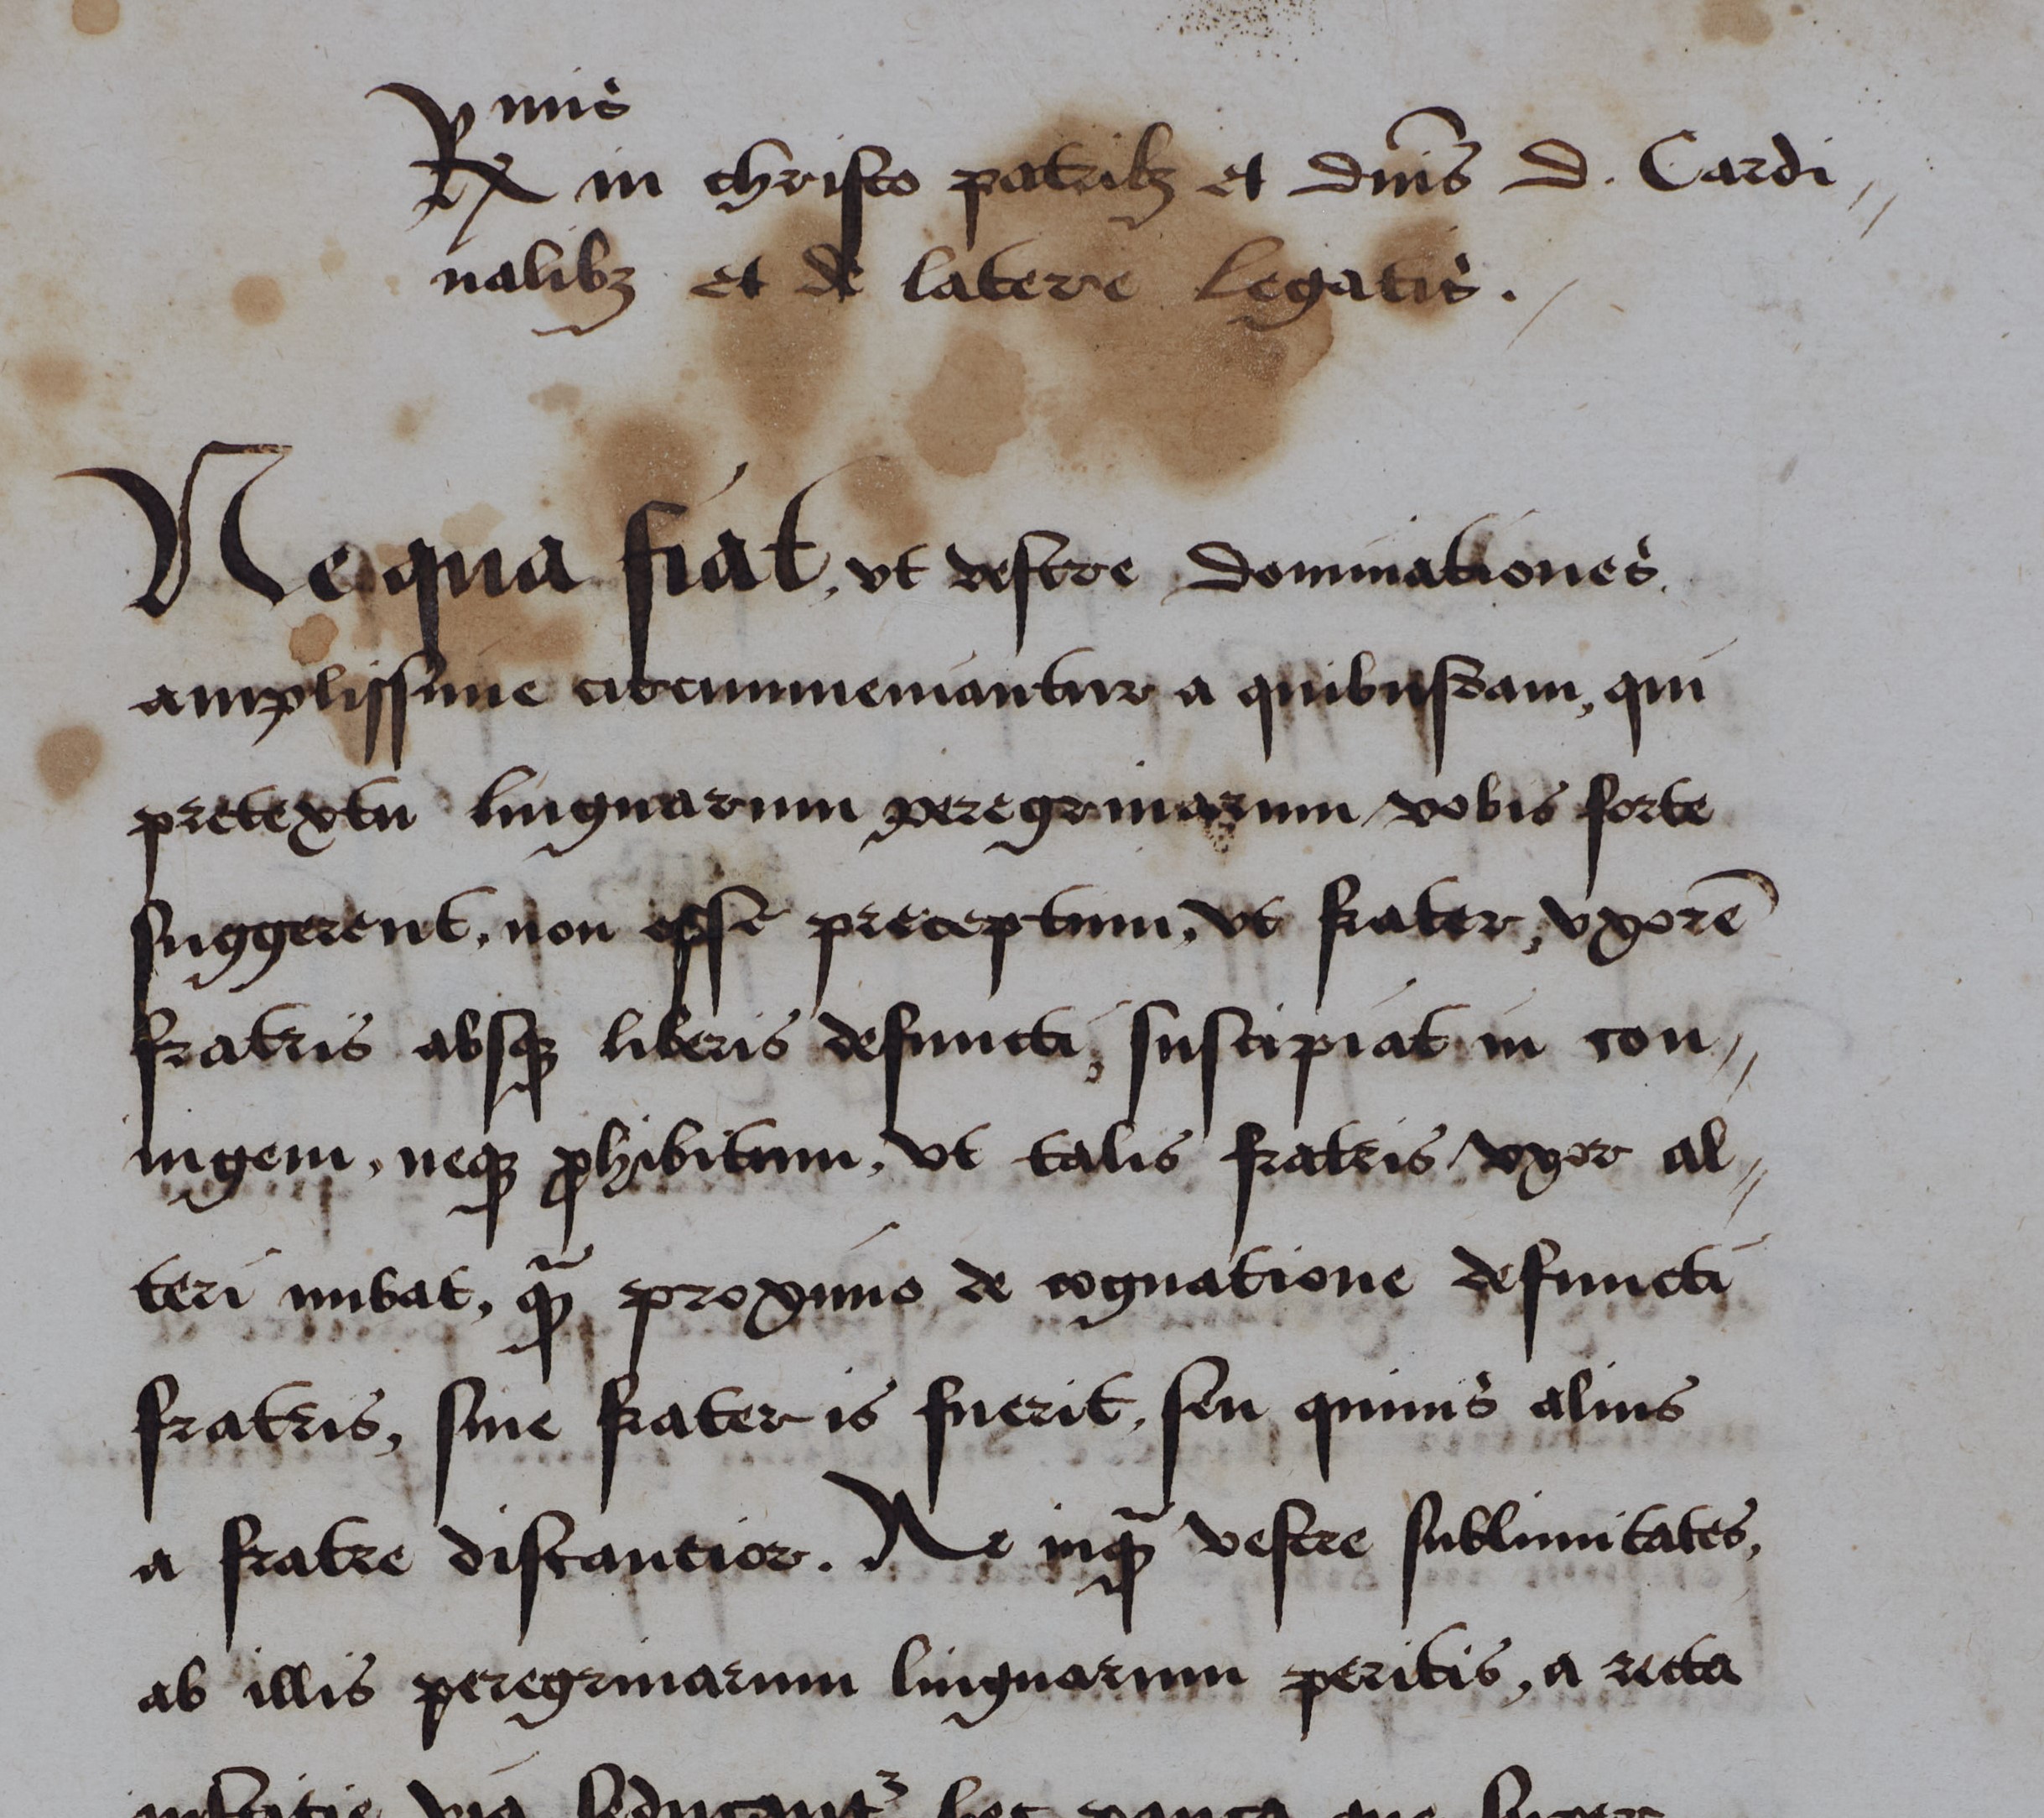 R mis
in christo patribꝫ et dnīs d. Cardi⸗
nalibꝫ et de latere legatis.
Ne qua fiat, vt vestre dominationes
amplissime circumueniantur a quibusdam, qui
pretextu linguarum peregrinarum vobis forte
suggerent, non esse preceptum, vt frater, vxorē
fratris absqꝫ liberis defuncti, suscipiat in con⸗
iugem, neqꝫ ꝓhibitum, vt talis fratris vxor al⸗
teri nubat, qꝫ̃ proximo de cognatione defuncti
fratris, siue frater is fuerit, seu quiuis alius
a fratre distantior. Ne inqꝫ̃ vestre sublimitates,
ab illis peregrinarum linguarum peritis, a recta
iustitie via seducant᷑ hec pauca que super